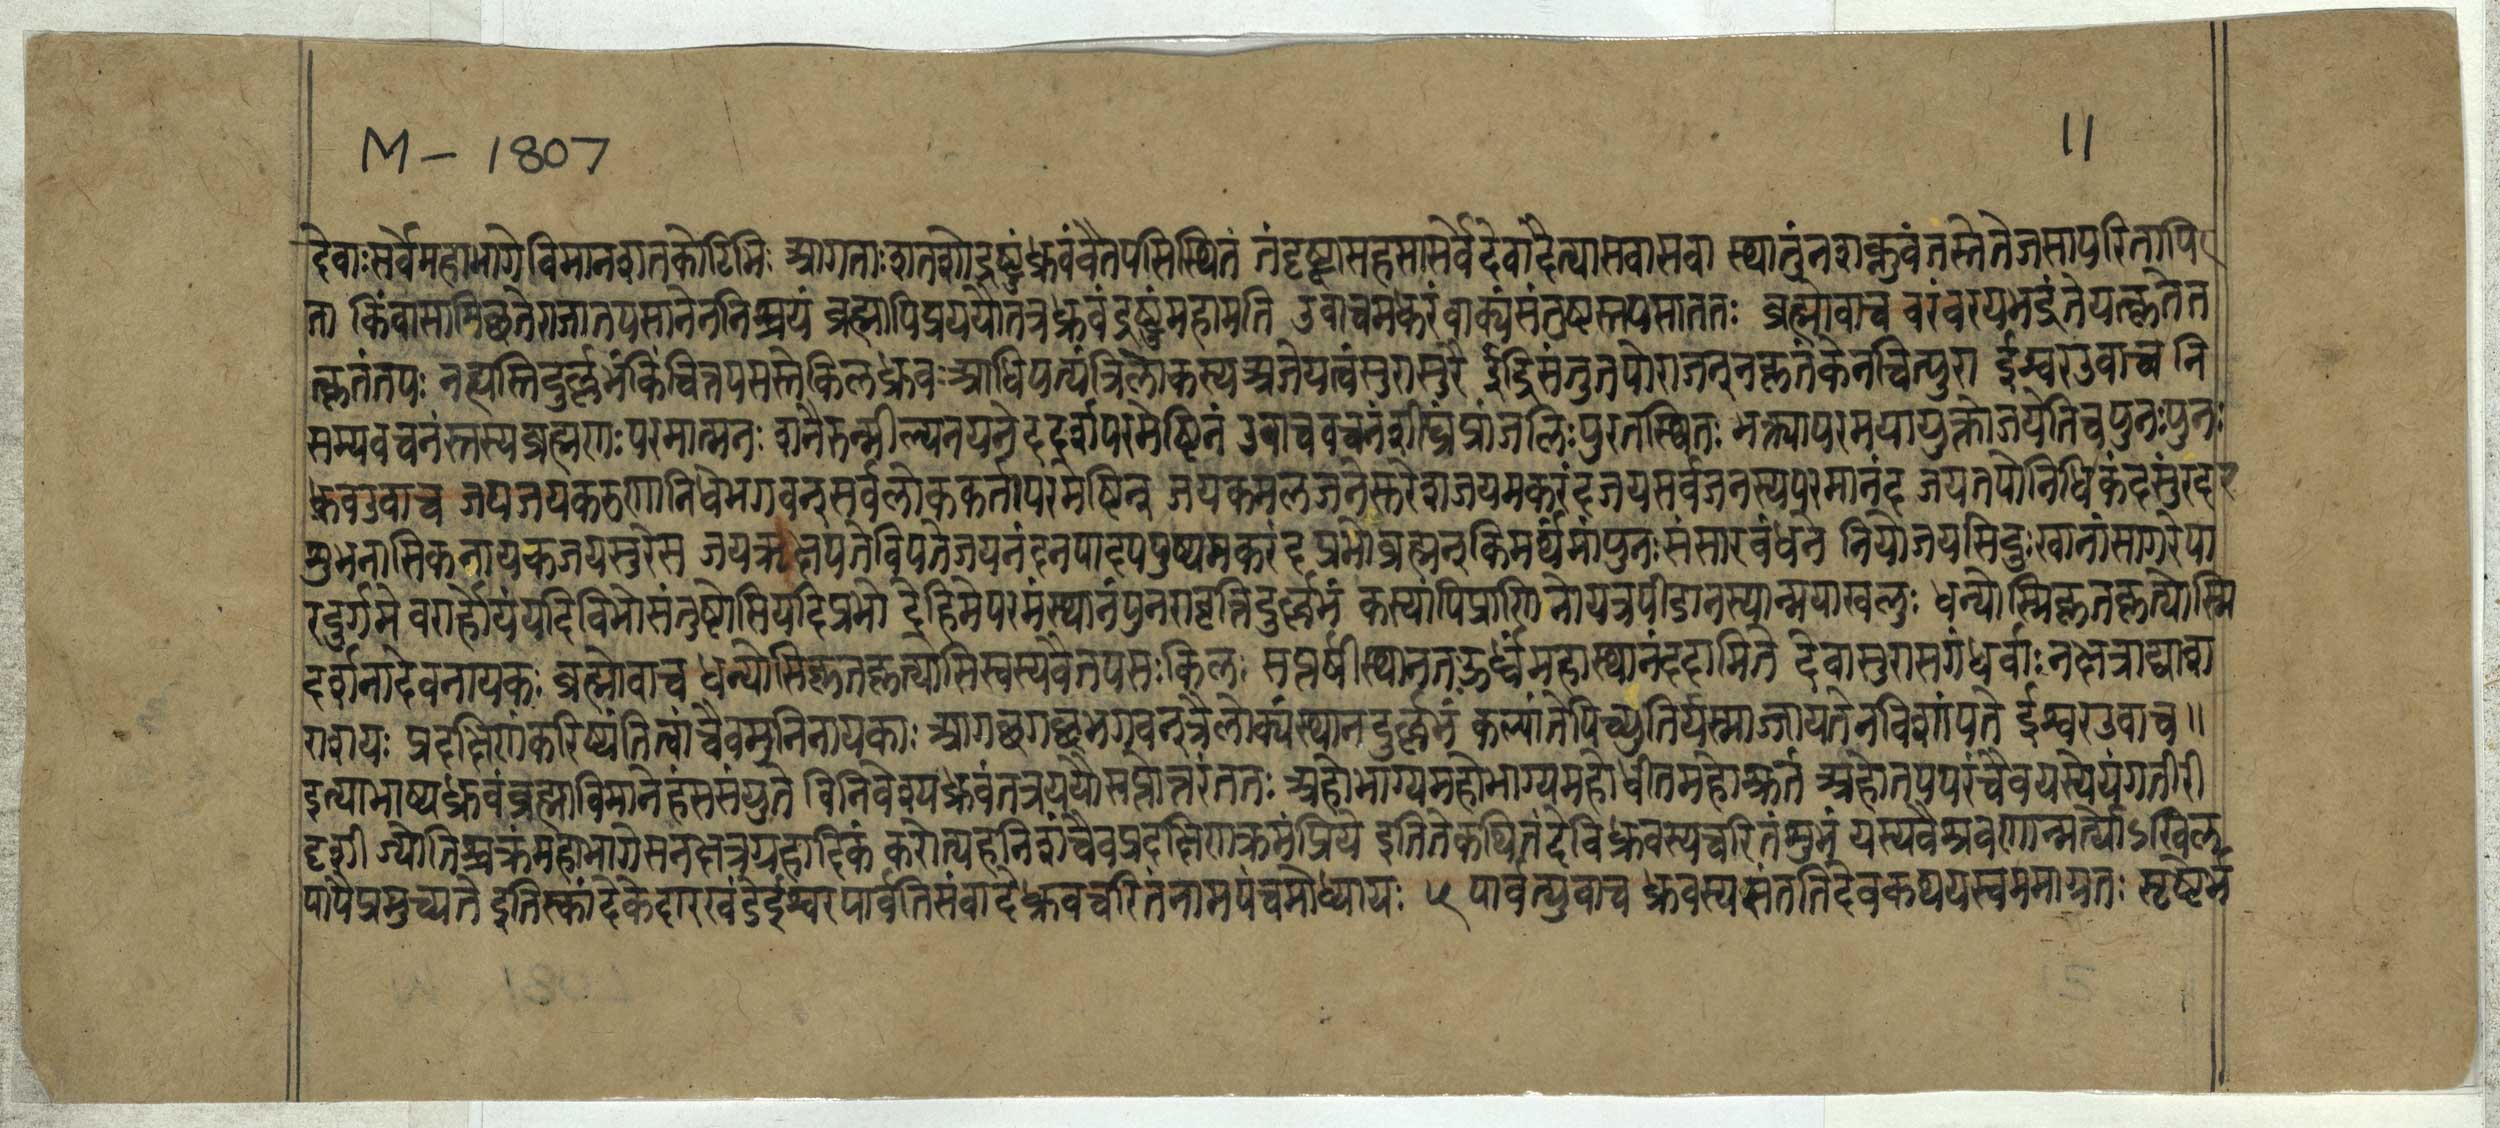 M - 1807
11
देवाः सर्वे महाभागे विमानशतकोटिभिः आगताः शतशो द्रष्टुं ध्रुवं वै तपसि स्थितं तं दृष्ट्वा सहसा सर्वे देवा दैत्या सवासवा स्थातुं न शक्नुवंतस्ते तेजसा परितापि
ता किं वा सामिछते राजा तपसानेन निश्चयं ब्रह्मापि प्रययौ तत्र ध्रुवं द्रष्टुं महामति उवाच मधुरं वाक्यं संतुष्टस्तपसा ततः ब्रह्मोवाच वरं वरय भद्रं ते यत्कृते त
त्कृतं तपः नह्यस्ति दुर्ल्लभं किंचित्तपसस्ते किल ध्रुवः आधिपत्यं त्रिलोकस्य अजेयत्वं सुरासुरै ईदृसं तु तपो राजन् न कृतं केनचित्पुरा ईश्वर उवाच नि
सम्य वचनं स्तस्य ब्रह्मणः परमात्मनः शनैरुन्मील्य नयने ददर्श परमेष्ठिनं उवाच वचनं शीघ्रं प्रांजलिः पुरत स्थितः भक्त्या परमया युक्तो जयेति च पुनः पुनः
ध्रुव उवाच जय जय करुणानिधे भगवन् सर्वलोककर्ता परमेष्ठिन् जय कमलजनेस्तरेश जय मकरंद जय सर्वजनस्य परमानंद जय तपोनिधि कंद सुंरदर
शुभनासिक नायक जय सुरेस जय ऋक्षपते विपते जय नंदनपादपपुष्पमकरंद प्रभो ब्रह्मन् किमर्थं मां पुनः संसारबंधने नियोजयसि दुःखानां सागरे पा
रदुर्गमे वरार्होयं यदि विभो संतुष्टोसि यदि प्रभो देहि मे परमं स्थानं पुनरावृत्तिदुर्ल्लभं कस्यापि प्राणिनो यत्र पीडा न स्यान्मया खलुः धन्योस्मि कृतकृत्योस्मि
दर्शना देवनायकः ब्रह्मोवाच धन्योसि कृतकृत्योसि स्वस्यैव तपसः किलः सप्तर्षीस्थानत ऊर्ध्वं महास्थानं ददामि ते देवासुरा सगंधर्वाः नक्षत्राद्याश
राशयः प्रदक्षिणां करिष्यंति त्वां चैव मुनिनायकाः आगछ गछ भगवन् त्रैलोक्यं स्थान दुर्ल्लभं कल्पांतेपि च्युतिर्यस्मा ज्जायते न विशां पते ईश्वर उवाच॥
इत्याभाष्य ध्रुवं ब्रह्मा विमाने हंससंयुते विनिवेश्य ध्रुवं तत्र ययौ सप्तोत्तरं ततः अहो भाग्यमहो भाग्यमहो धीतमहो श्रुतं अहो तप परं चैव यस्येयं गतीरी
दृशी ज्योतिश्चक्रं महाभागे सनक्षत्रग्रहादिकं करोत्यहनिशं चैव प्रदक्षिणाक्रमं प्रिये इति ते कथितं देवि ध्रुवस्य चरितं शुभं यस्य वै श्रवणान्मर्त्योऽखिल
पापै प्रमुच्यते इति स्कांदे केदारखंडे ईश्वरपार्वतिसंवादे ध्रुवचरितं नाम पंचमोध्यायः ५ पार्वत्युवाच ध्रुवस्य संतति देव कथयस्व ममाग्रतः